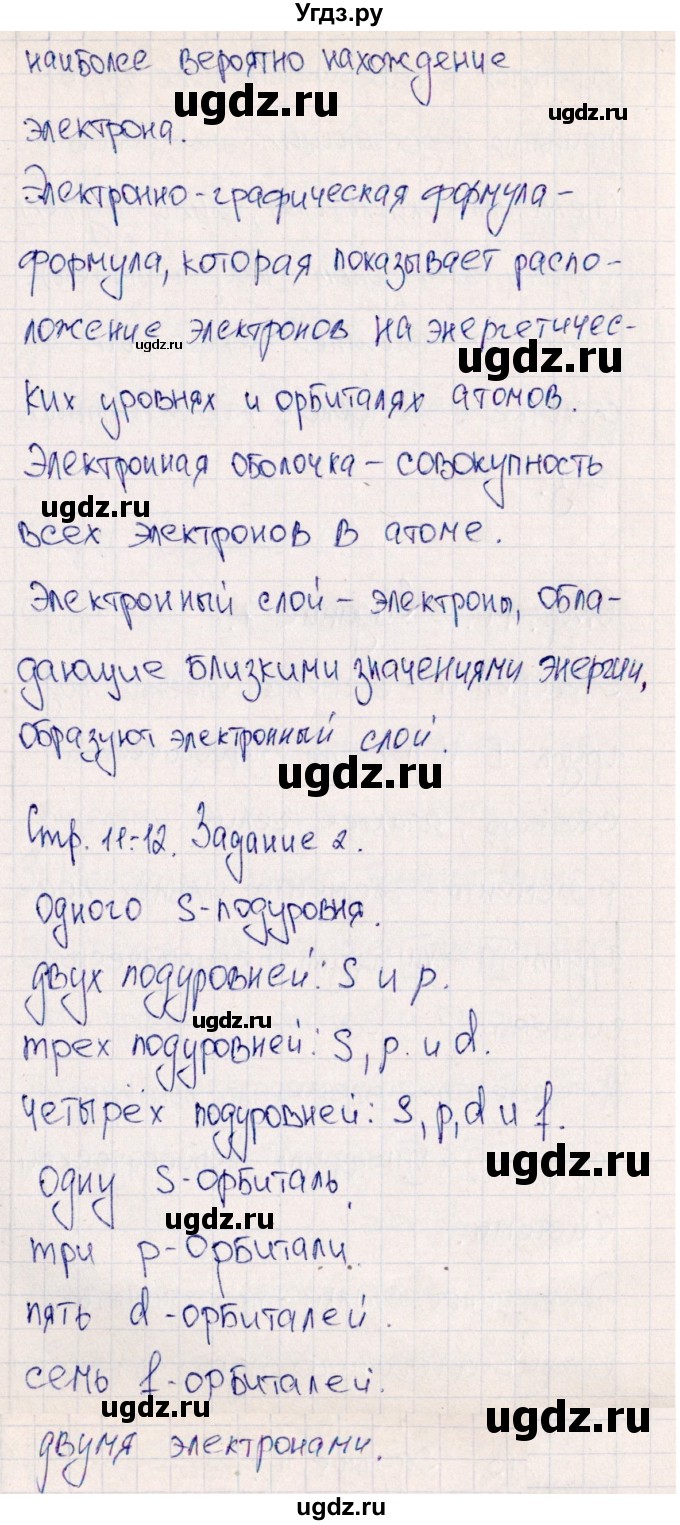 Угдз.ру
наиболее вероятно нахождение
ugdz.ru
ugdz.ru
электрона.
Электронно-графическая формула –
формула, которая показывает распо-
ложение электронов на энергетичес-
ugdz.ru
ugdz.ru
ких уровнях и орбиталях атомов.
Электронная оболочка – совокупность
ugdz.ru
всех электронов в атоме.
Электронный слой – электроны, обла-
дающие близкими значениями энергии,
образуют электронный слой.
ugdz.ru
Стр. 11-12. Задание 2.
одного s-подуровня.
двух подуровней: s и p.
ugdz.ru
трех подуровней: s, p. и d.
четырёх подуровней: s, p, d и f.
ugdz.ru
одну s-орбиталь.
ugdz.ru
три p-орбитали.
пять d-орбиталей.
семь f-орбиталей.
ugdz.ru
ugdz.ru
двумя электронами.
ugdz.ru